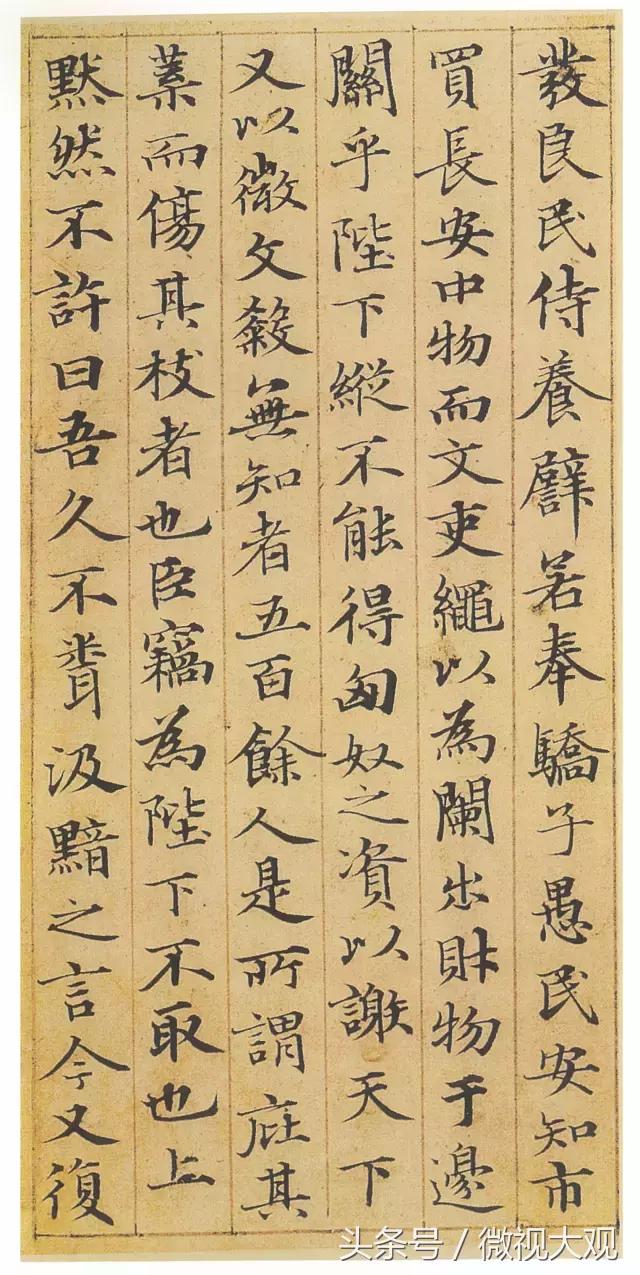 發良民侍養譬若奉驕子愚民安知市
買長安中物而文吏繩以為闌出財物于邊
關乎陛下縱不能得匈奴之資以謝天下
又以微文殺無知者五百餘人是所謂庇其
葉而傷其枝者也臣竊為陛下不取也上
默然不許曰吾久不聞汲黯之言今又復
头条号/微视大观